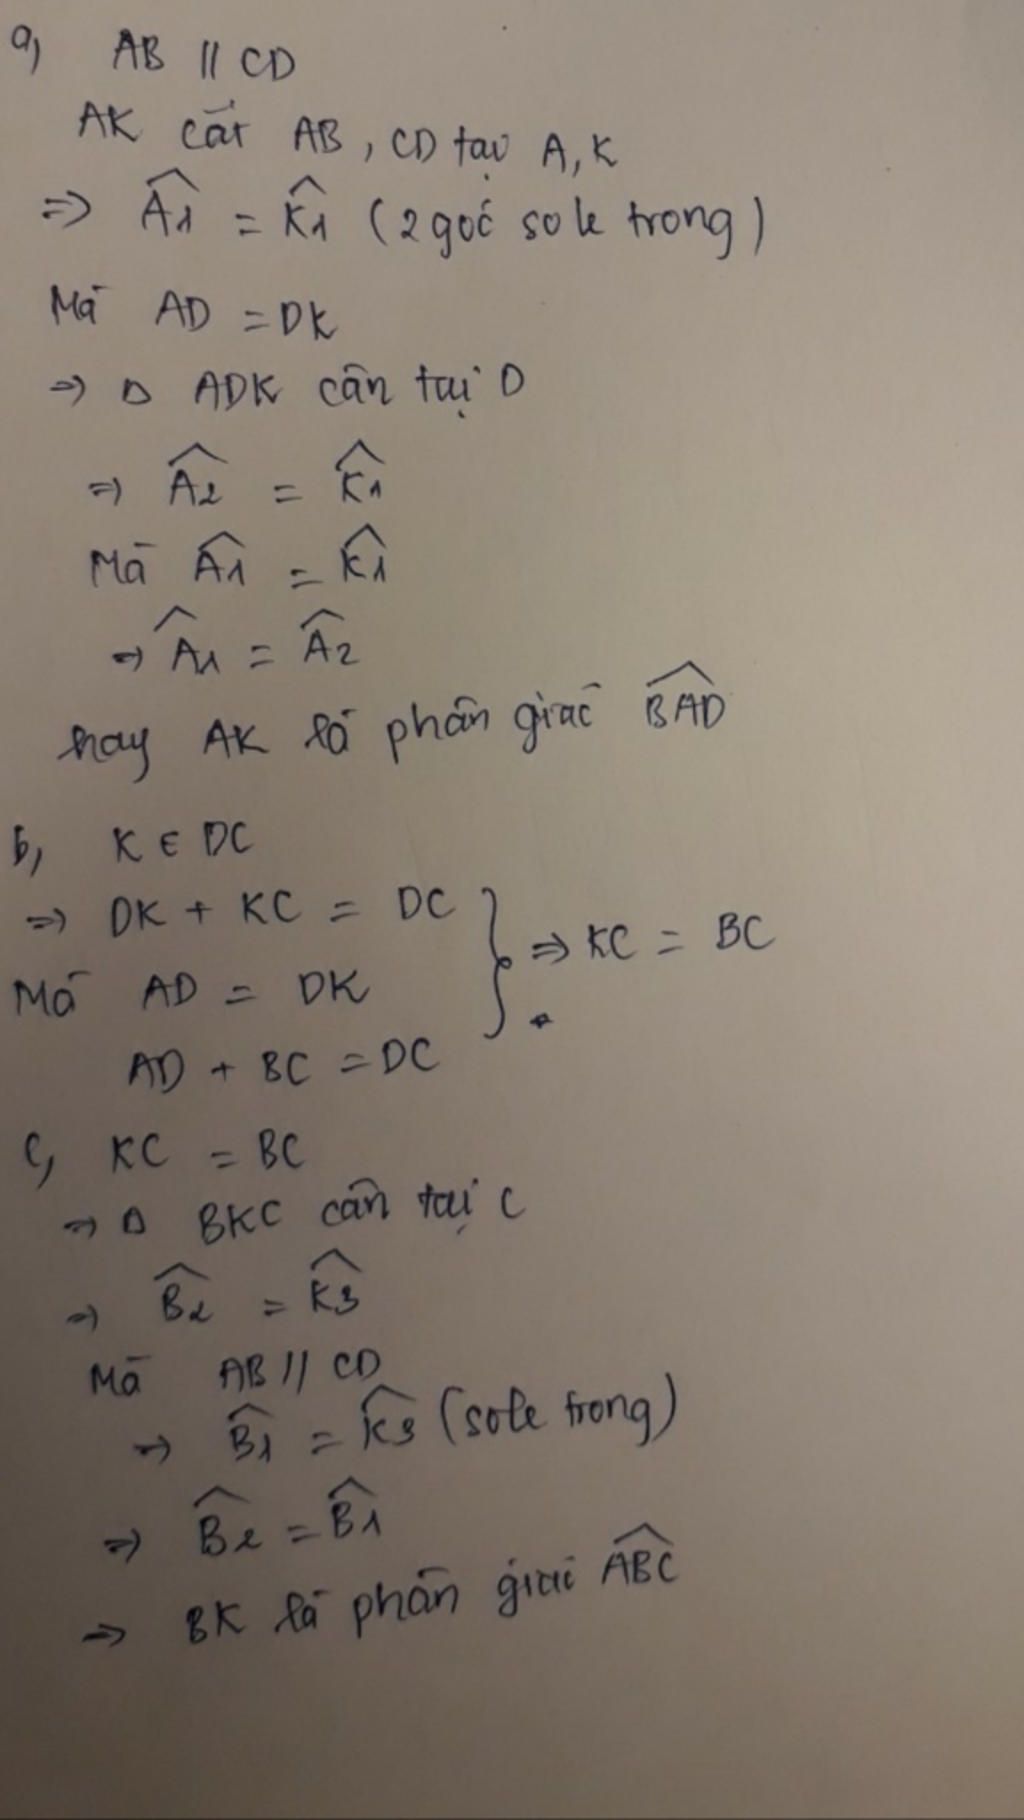 a, AB // CD
AK cắt AB, CD tại A, K
=> Â1 = K̂1 (2 góc so le trong)
Mà AD = DK
=> Δ ADK cân tại D
=> Â2 = K̂1
Mà Â1 = K̂1
=> Â1 = Â2
hay AK là phân giác \widehat{BAD}
b, K ∈ DC
=> DK + KC = DC
Mà AD = DK
AD + BC = DC
} => KC = BC
c, KC = BC
=> Δ BKC cân tại C
=> B̂2 = K̂3
Mà AB // CD
=> B̂1 = K̂3 (so le trong)
=> B̂2 = B̂1
=> BK là phân giác \widehat{ABC}